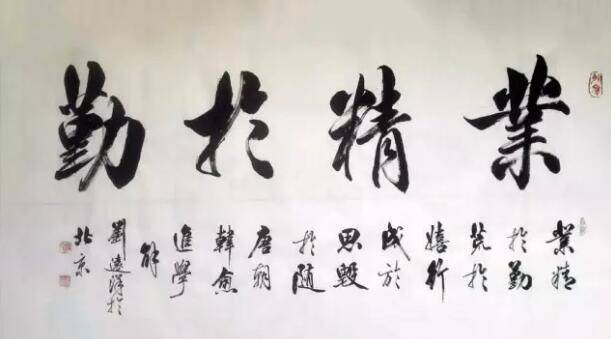 業精於勤
業精
於勤
荒於
嬉行
成於
思毀
於隨
唐朝
韓愈
進學
解
劉遠於
北京